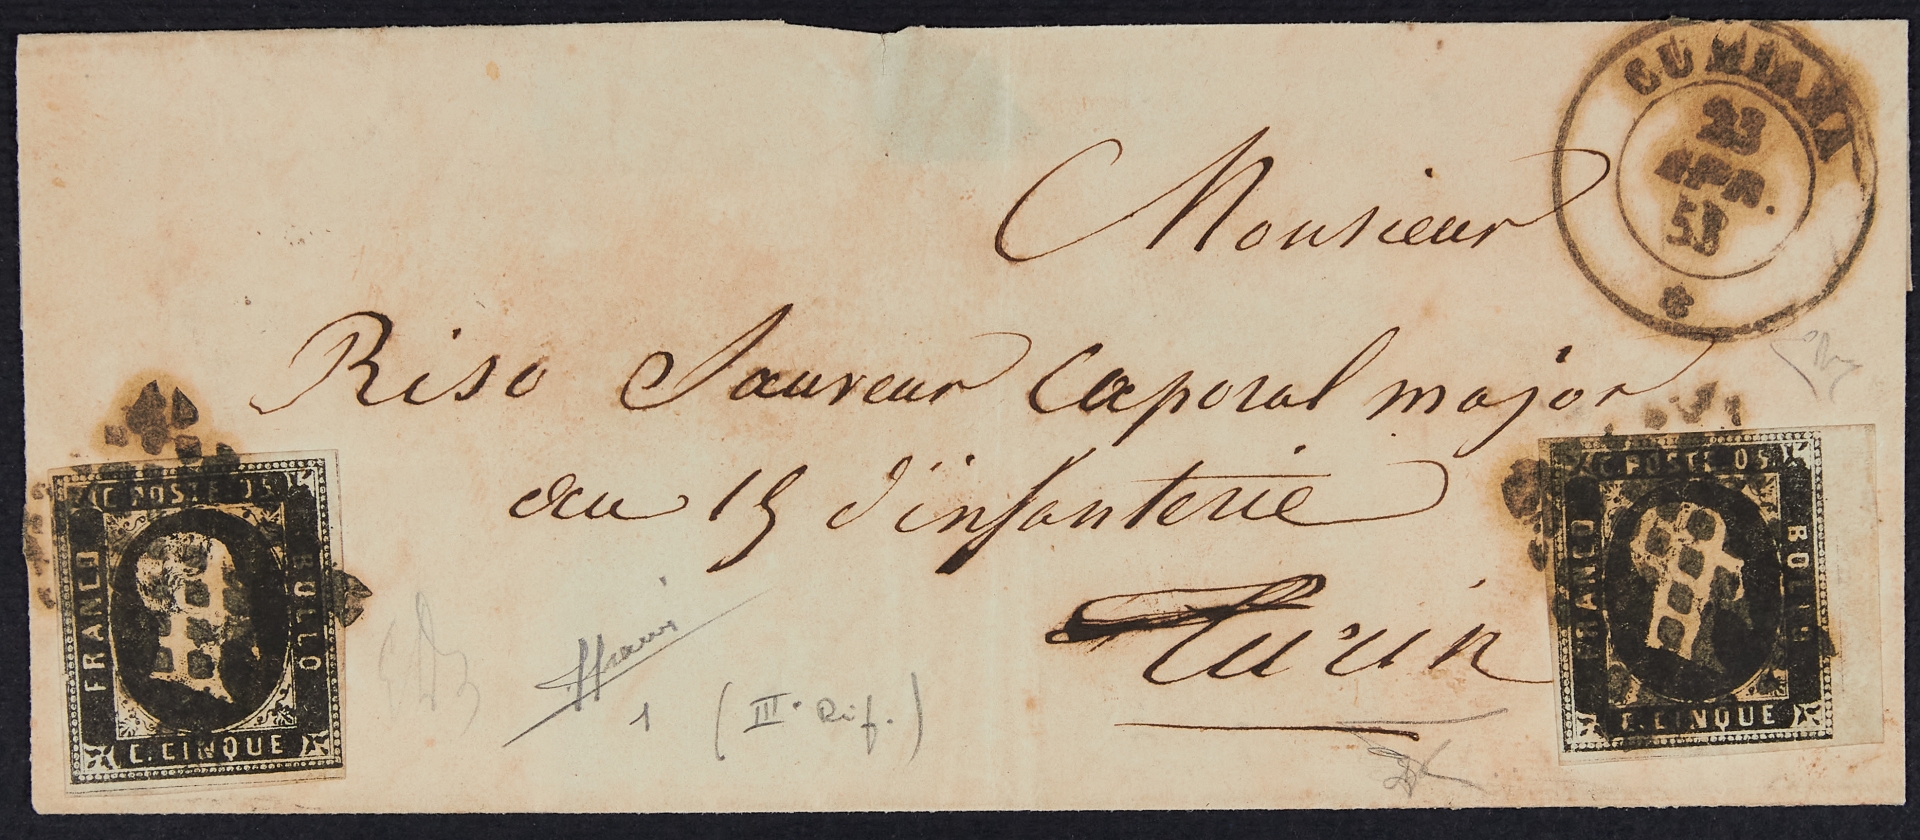 CUMIANA
23
APR.
53
Monsieur
Riso Sauveur Caporal major
au 15 d'infanterie
Turin
C. POSTE 05
FRANCO
BOLLO
C. CINQUE
C. POSTE 05
FRANCO
BOLLO
C. CINQUE
1 (III. Rif.)